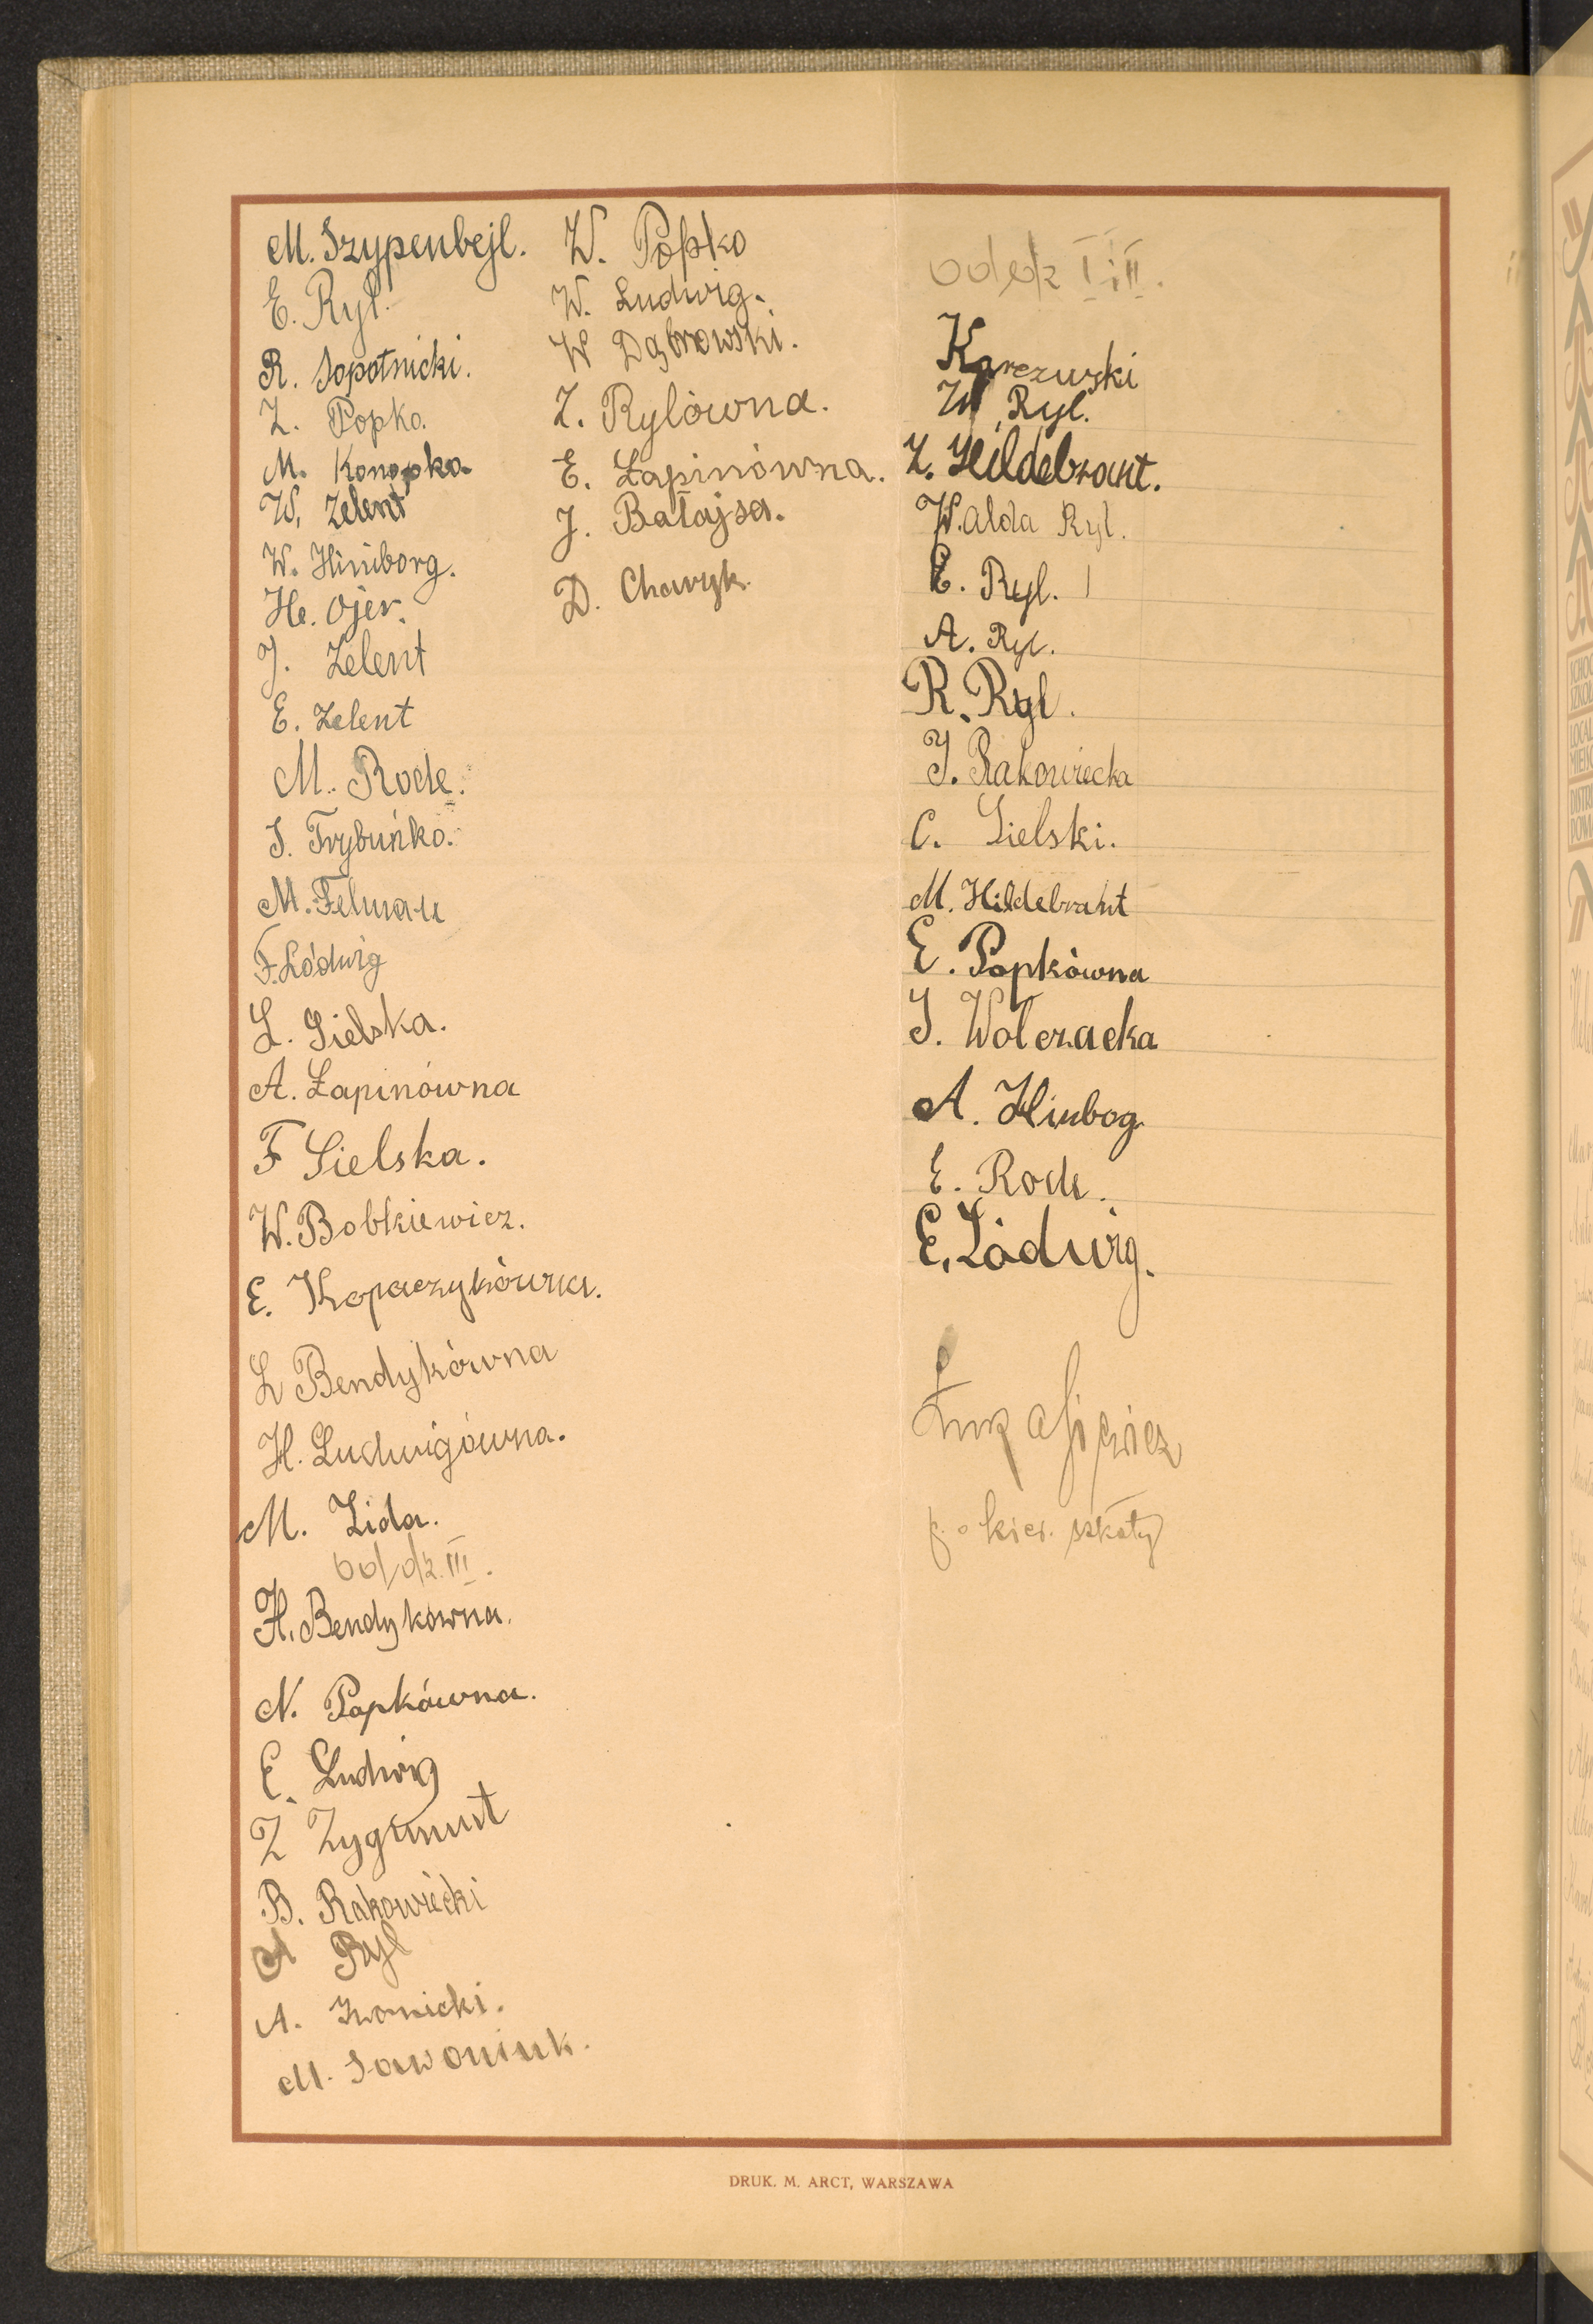 M. Szypenbejl.
E. Ryl.
R. Sopotnicki.
Z. Popko.
M. Konopka.
W. Zelent
W. Hiniborg.
He. Ojer.
J. Zelent
E. Zelent
M. Rode.
J. Trybuńko.
M. Felman
F. Lódwig
L. Sielska.
A. Łapinówna
F Sielska.
W. Bobkiewicz.
E. Kopaczykówna.
L Bendykówna
H. Ludwigówna.
M. Lida.
oddz. III.
H. Bendykówna.
N. Popkówna.
E. Ludwig
Z Zygmunt
B. Rakowiecki
A Ryl
A. Iwonicki.
M. Sawoniuk.
W. Popko
W. Ludwig.
W Dąbrowski.
Z. Rylówna.
E. Łapinówna.
J. Bałajsa.
D. Chavyk.
oddz I i II.
Karczewski
W. Ryl.
Z. Hildebrant.
W. alda Ryl.
E. Ryl.
A. Ryl.
R. Ryl.
J. Rakowiecka
C. Sielski.
M. Hildebrant
E. Popkówna
J. Wolczacka
A. Hinbog
E. Rode.
E. Lódwig.
Łukasiewicz
p. o kier. szkoły
DRUK. M. ARCT, WARSZAWA